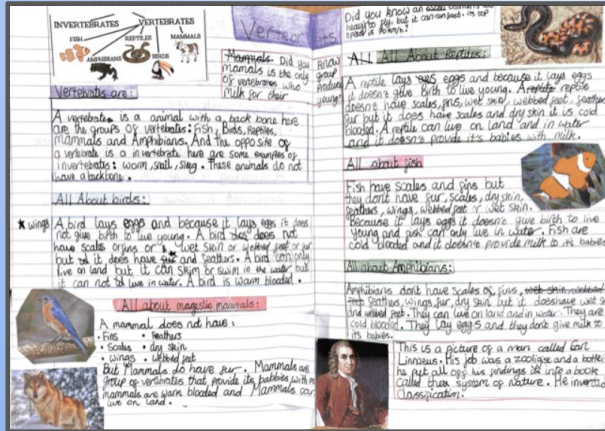 INVERTEBRATES
VERTEBRATES
FISH
REPTILES
MAMMALS
AMPHIBIANS
BIRDS
Mammals Did you know
mamals is the only group
of vertebrates who produce
milk for their young?
Vertebrates are:
A vertebrate is a animal with a back bone here
are the groups of vertebrates: Fish, Birds, Reptiles,
Mammals and Amphibians. And the opposite of
a vertebrate is a invertebrate here are some examples of
invertebrates: worm, snail, slug. These animals do not
have a backbone.
All About birds:
★ wings
A bird lays eggs and because it lays eggs it does
not give birth to live young. A bird does not
have scales or fins or wet skin or webbed feet or fur
but it does have and feathers. A bird can only
live on land but it can skim or swim in the water but
it can not live in water. A bird is warm blooded.
All about magestic mammals:
A mammal does not have:
• Fins • Feathers
• Scales • dry skin
• wings • webbed feet
But Mammals do have fur. Mammals are
group of vertibates that provide its babbies with
mammals are warm blooded and Mammals can
live on land.
Did you know an
to fly but it can its top
speed is
All All About Reptiles:
A reptile lays eggs and because it lays eggs
it doesn't give birth to live young. A reptile
doesn't have scales, fins, wet skin, webbed feet, feathers
fur but it does have scales and dry skin it is cold
blooded. A reptile can live on land and in water
and it doesn't provide it's babies with milk.
All about fish
Fish have Scales and fins but
they don't have fur, scales, dry skin,
feathers, wings, webbed feet or wet skin.
Because it lays eggs it doesn't give birth to live
young and fish can only live in water. Fish are
cold blooded and it doesn't provide milk to its babies
All about Amphibians:
Amphibians don't have scales or, fins,
feathers, wings, fur, dry skin but it does have wet s
and webbed feet. They can live on land and in water. They are
cold blooded. They lay eggs and they don't give milk to
its babies.
This is a picture of a man called Carl
Linnaeus. His job was a zooligist and a
he put all off his findings into a book
called their system of nature. He invented
classification.